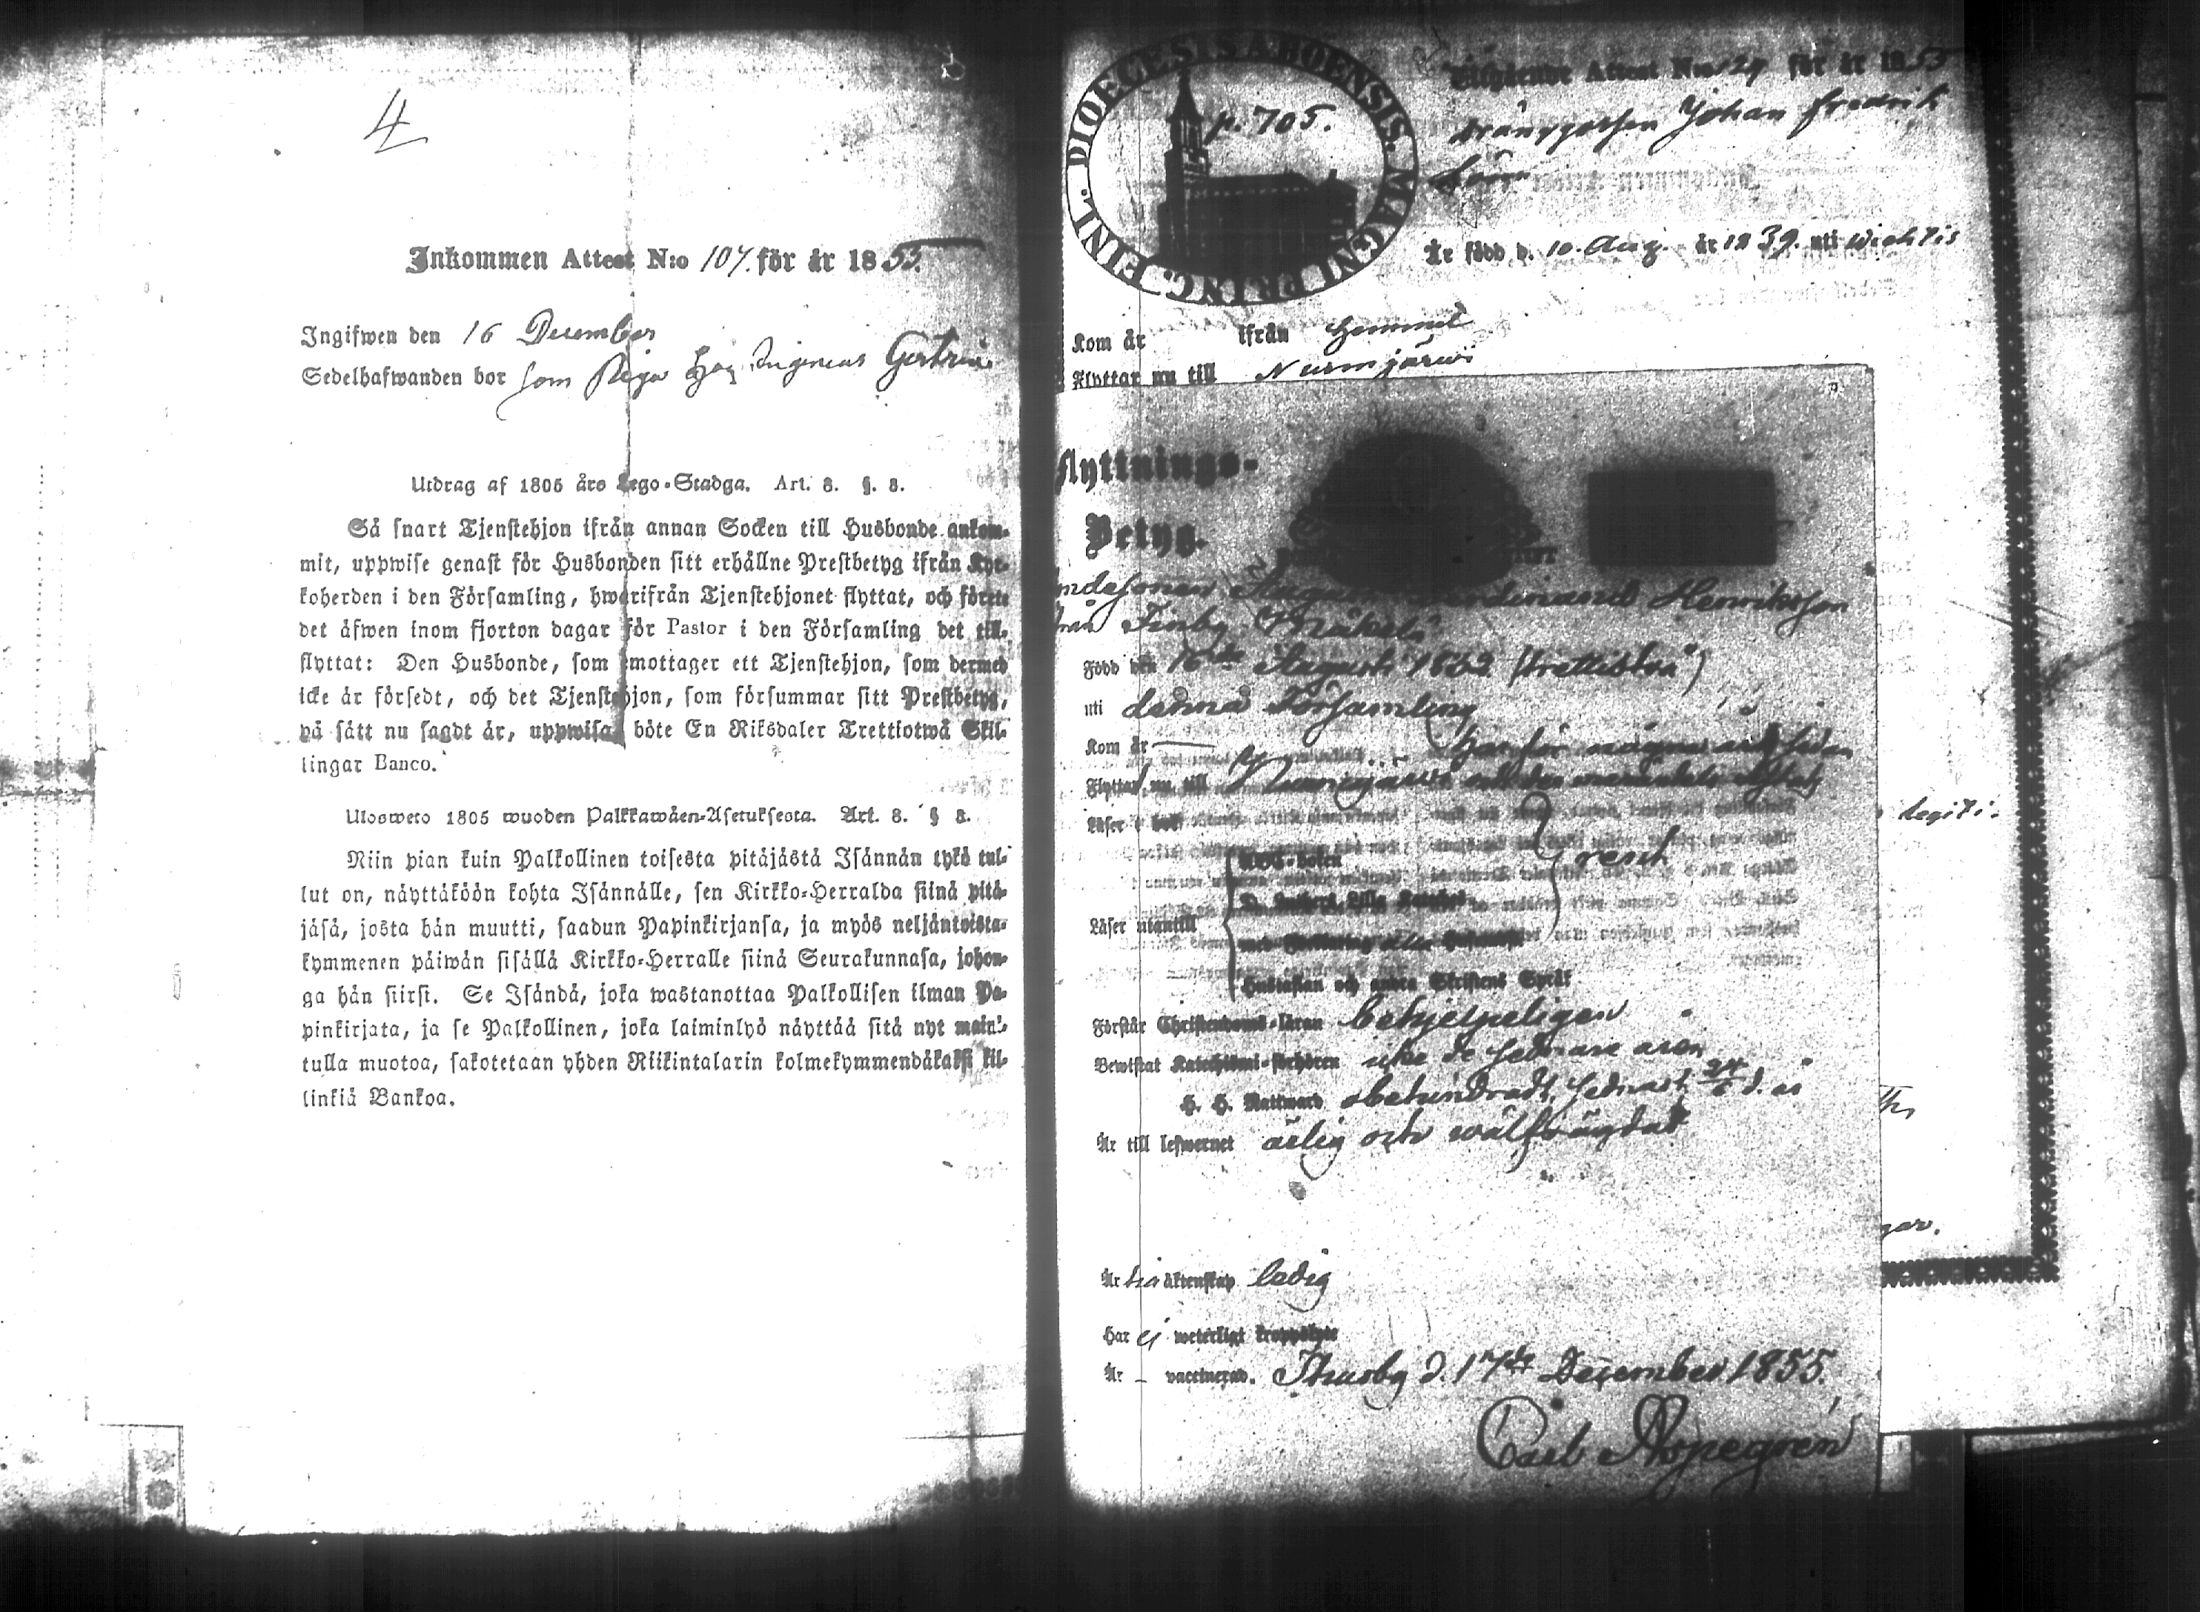 4
Inkommen Attest N:o 107. för år 1855.
Ingifwen den 16 December
Sedelhafwanden bor som Piga hos Gertrud
Utdrag af 1805 års Lego-Stadga. Art. 8. §. 8.
Så snart Tjenstehjon ifrån annan Socken till Husbonde ankom-
mit, uppwise genast för Husbonden sitt erhållne Prestbetyg ifrån Kyr-
koherden i den Församling, hwarifrån Tjenstehjonet flyttat, och förete
det äfwen inom fjorton dagar för Pastor i den Församling det till-
flyttat: Den Husbonde, som emottager ett Tjenstehjon, som dermed
icke är försedt, och det Tjenstehjon, som försummar sitt Prestbetyg,
på sätt nu sagdt är, uppwisa, böte En Riksdaler Trettiotwå Skil-
lingar Banco.
Ulosweto 1805 wuoden Palkkawäen-Asetuksesta. Art. 8. § 8.
Niin pian kuin Palkollinen toisesta pitäjästä Isännän tykö tul-
lut on, näyttäköön kohta Isännälle, sen Kirkko-Herralda siinä pitä-
jäsä, josta hän muutti, saadun Papinkirjansa, ja myös neljäntoista-
kymmenen päiwän sisällä Kirkko-Herralle siinä Seurakunnasa, johon-
ga hän siirsi. Se Isändä, joka wastanottaa Palkollisen ilman Pa-
pinkirjata, ja se Palkollinen, joka laiminlyö näyttää sitä nyt main'-
tulla muotoa, sakotetaan yhden Riikintalarin kolmekymmendäkaksi kil-
linkiä Bankoa.
FINL. DIOECESIS ABOENSIS. MAGNI PRINC.
p. 705.
Utgående Attest N:o 124 för år 1855
Dränggossen Johan Fredrik
Är född d. 10. Aug. år 1839. uti Wichtis
Kom år ifrån Hemmet
Flyttar nu till Nurmijärvi
Flyttnings-
Betyg.
Ferdinand Henriksson
från
Född den 16de Augusti 1832 (trettiotvå)
uti denna Församling
Kom år har för några år sedan
Flyttar nu till Nurmijärvi
Läser i bok
ABC-boken
rent
D. Luthers Lilla Kateches
Läser utantill
med Förklaring
Hustaflan och andra Skriftens Språk
Förstår Christendoms-läran behjelpeligen
Bewistat Katechismi-förhören icke de sednare åren
H. H. Nattward obehindradt, sednast 24/6 d. år
Är till lefwernet ärlig och wälfrägdad
Är till äktenskap ledig
Har ej weterligt kroppslyte
Är - vaccinerad. Thusby d. 17de December 1855.
Carl Aspegrén
legiti-